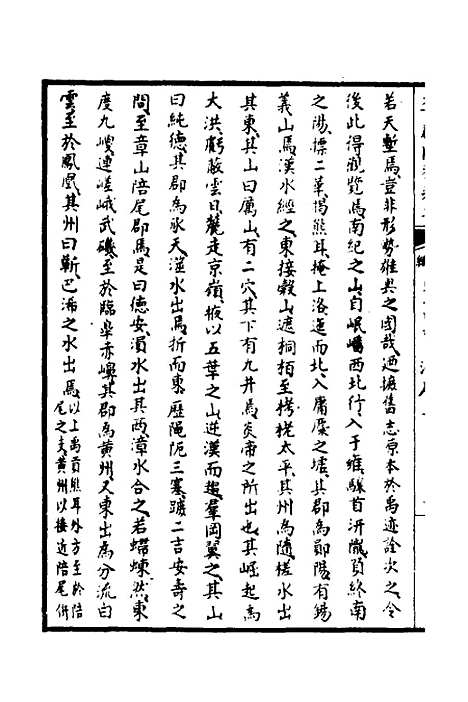 若天塹焉豈非形勢雄奥之國哉迺據舊志原本於禹迹詮次之令
後此得觀覽焉南紀之山自岷嶓西北行入于雍縣首汧隴負終南
之陽標二華揭熊耳掩上洛迤而北入庸麇之墟其郡為鄖陽有錫
義山焉漢水經之東接穀山遮桐栢至栲栳太平其州為隨槎水出
其東其山曰厲山有二穴其下有九井焉炎帝之所出也其崛起為
大洪虧蔽雲日麓走京嶺掖以五華之山逆漢而趨羣岡翼之其山
曰純德其郡為承天溠水出焉折而東歷黽阨三塞躔二吉安壽之
間至章山陪尾郡焉是曰德安溳水出其西漳水合之若蠕蝀然東
度九嵏連嵯峨武磯至於臨臯赤嶼其郡為黃州又東出為分流白
雲至於鳳凰其州曰蘄巴浠之水出焉以上禹貢熊耳外方至於陪
尾之支黃州以接近陪尾併